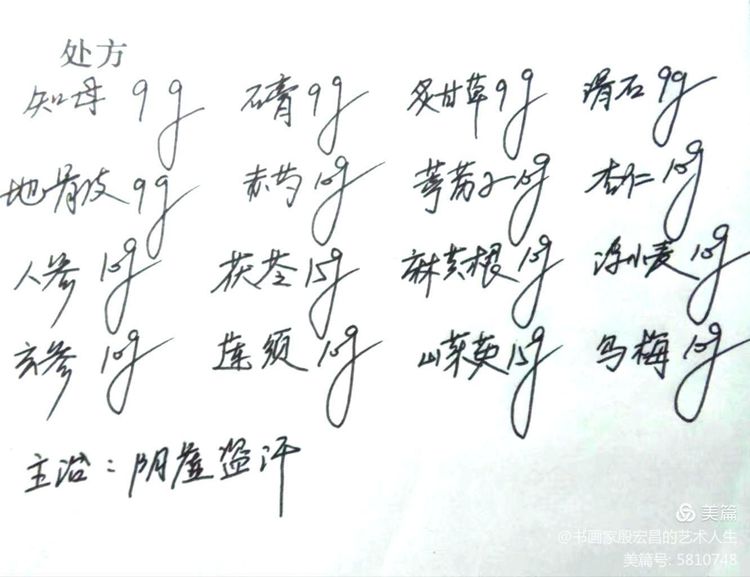 处方
知母 9g 石膏 9g 炙甘草 9g 滑石 9g
地骨皮 9g 赤芍 10g 葶苈子 10g 杏仁 10g
人参 10g 茯苓 15g 麻黄根 10g 浮小麦 10g
玄参 10g 莲须 10g 山茱萸 15g 乌梅 10g
主治：阴虚盗汗
美篇
@书画家殷宏昌的艺术人生
美篇号: 5810748